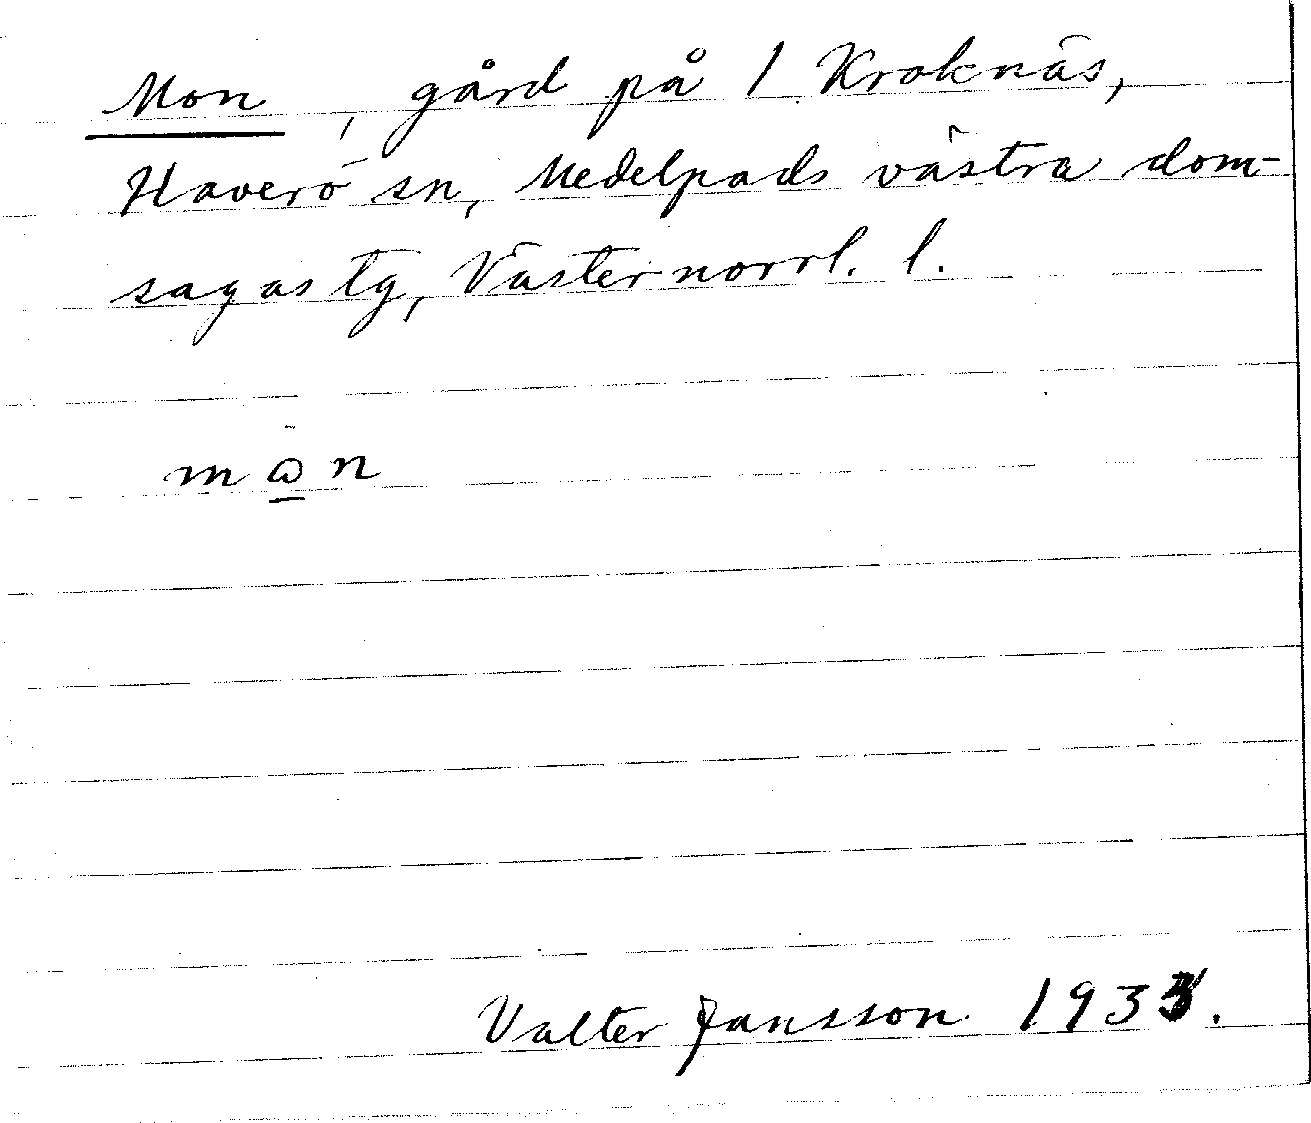 Mon, gård på 1 Kroknäs,
Haverö sn, Medelpads västra dom-
sagas tg, Västernorrl. l.
mω̲n
Valter Jansson 193